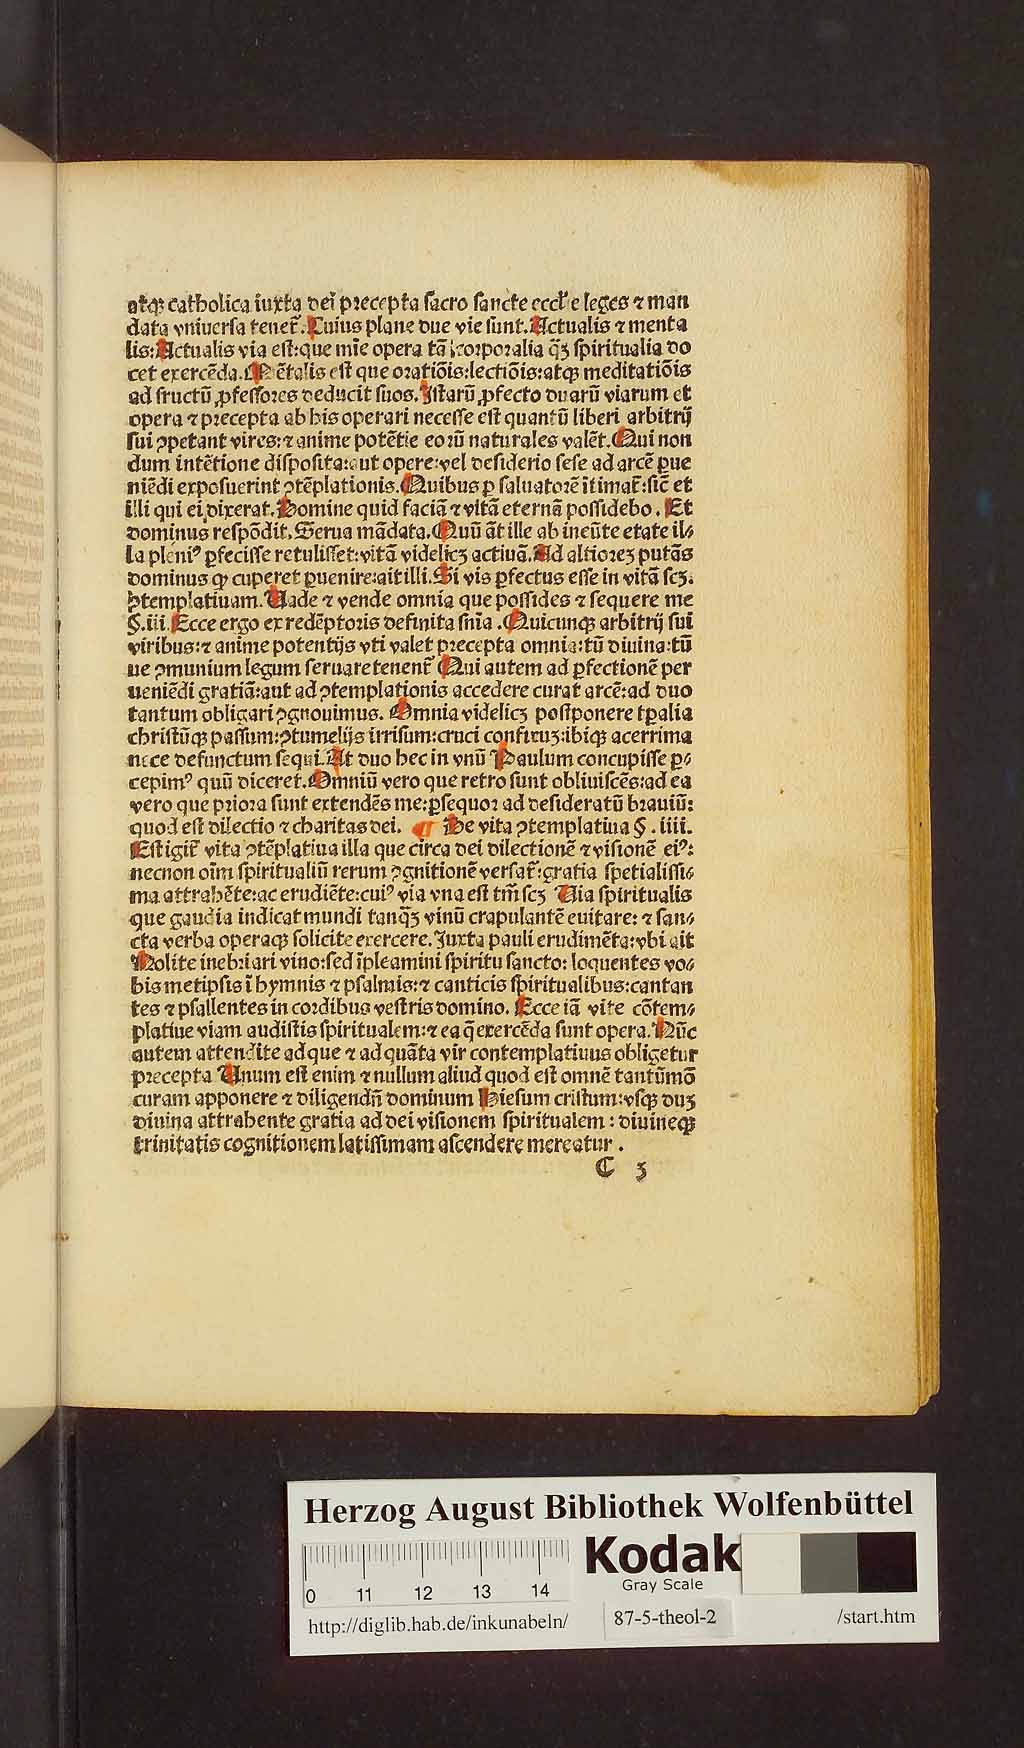 atqꝫ catholica iuxta dei precepta sacro sancte eccl'e leges ⁊ man
data vniuersa tenet᷑. Cuius plane due vie sunt. Actualis ⁊ menta
lis: Actualis via est: que mīe opera tā corporalia q̄ꝫ spiritualia do
cet exercēda. Mētalis est que oratiōis: lectiōis: atqꝫ meditatiōis
ad fructū ꝓfessores deducit suos. Istarū ꝓfecto duarū viarum et
opera ⁊ precepta ab his operari necesse est quantū liberi arbitrij
sui ꝯpetant vires: ⁊ anime potētie eorū naturales valēt. Qui non
dum intētione disposita: aut opere: vel desiderio sese ad arcē ꝑue
niēdi exposuerint ꝯtēplationis. Quibus ꝑ saluatorē ītimat᷑: sic̄ et
illi qui ei dixerat. Domine quid faciā ⁊ vitā eternā possidebo. Et
dominus respōdit. Serua mādata. Quū āt ille ab ineūte etate il⸗
la pleniꝰ ꝑfecisse retulisset: vitā videlicꝫ actiuā. Ad altiorez putās
dominus qꝫ cuperet ꝑuenire: ait illi. Si vis ꝑfectus esse in vitā scꝫ.
ꝯtemplatiuam. Uade ⁊ vende omnia que possides ⁊ sequere me
§. iii. Ecce ergo ex redēptoris definita snīa. Quicunqꝫ arbitrij sui
viribus: ⁊ anime potentijs vti valet precepta omnia: tū diuina: tū
ue ꝯmunium legum seruare tenent᷑ Qui autem ad ꝑfectionē per
ueniēdi gratiā: aut ad ꝯtemplationis accedere curat arcē: ad duo
tantum obligari ꝯgnouimus. Omnia videlicꝫ postponere tꝑalia
christūqꝫ passum: ꝯtumelijs irrisum: cruci confixuꝫ: ibiqꝫ acerrima
nece defunctum sequi. At duo hec in vnū Paulum concupisse ꝑ⸗
cepimꝰ quū diceret. Omniū vero que retro sunt obliuiscēs: ad ea
vero que priora sunt extendēs me: ꝑsequor ad desideratū brauiū:
quod est dilectio ⁊ charitas dei. ¶ De vita ꝯtemplatiua §. iiii.
Est igit᷑ vita ꝯtēplatiua illa que circa dei dilectionē ⁊ visionē eiꝰ:
necnon oīm spiritualiū rerum ꝯgnitionē versat᷑: gratia spetialissi⸗
ma attrahēte: ac erudiēte: cuiꝰ via vna est tm̄ scꝫ Uia spiritualis
que gaudia indicat mundi tanq̄ꝫ vinū crapulantē euitare: ⁊ san⸗
cta verba operaqꝫ solicite exercere. Iuxta pauli erudimēta: vbi ait
Nolite inebriari vino: sed īpleamini spiritu sancto: loquentes vo⸗
bis metipsis ī hymnis ⁊ psalmis: ⁊ canticis spiritualibus: cantan
tes ⁊ psallentes in cordibus vestris domino. Ecce iā vite cōtem⸗
platiue viam audistis spiritualem: ⁊ ea q̄ exercēda sunt opera. Nūc
autem attendite ad que ⁊ ad quāta vir contemplatiuus obligetur
precepta Unum est enim ⁊ nullum aliud quod est omnē tantūmō
curam apponere ⁊ diligendn̄ dominum Hiesum cristum: vsqꝫ duꝫ
diuina attrahente gratia ad dei visionem spiritualem: diuineqꝫ
trinitatis cognitionem latissimam ascendere mereatur.
C 3
Herzog August Bibliothek Wolfenbüttel
Kodak
Gray Scale
0 11 12 13 14
http://diglib.hab.de/inkunabeln/ 87-5-theol-2 /start.htm